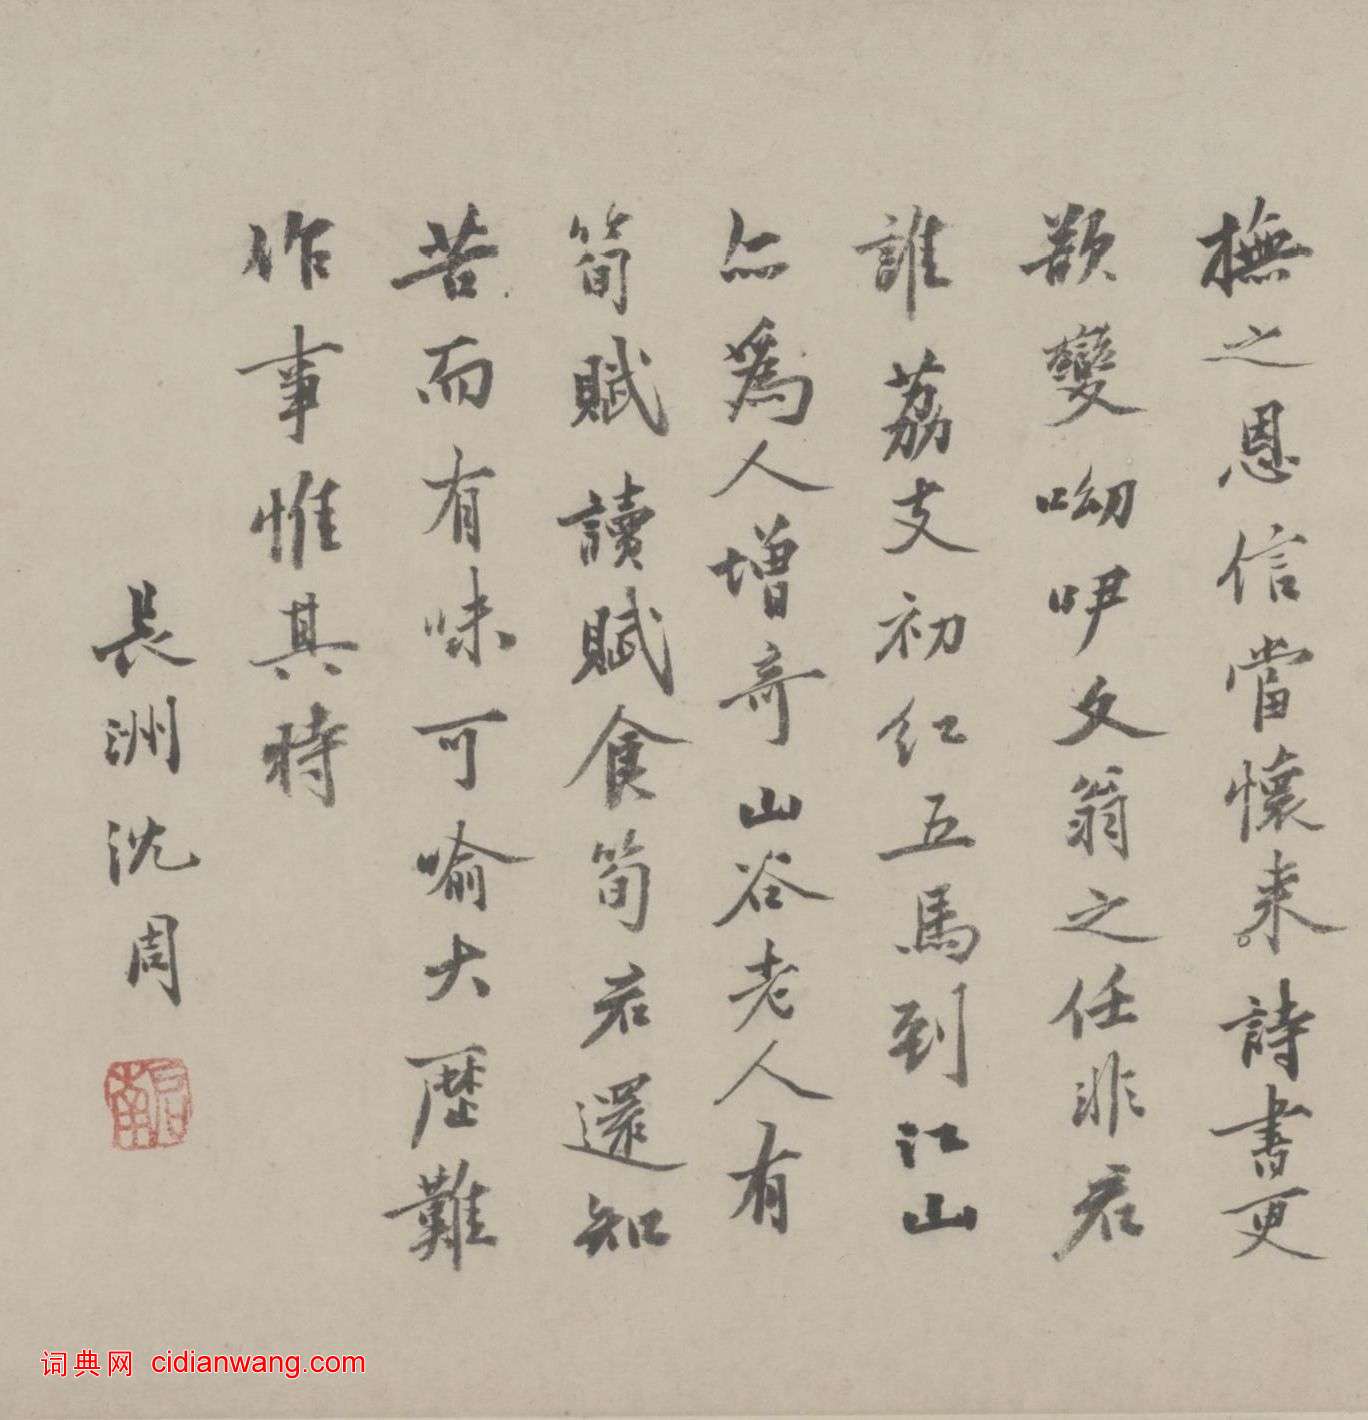 撫之恩信當懷来詩書更
欲變呦吚文翁之任非君
誰荔支初紅五馬到江山
亦為人增奇山谷老人有
筍賦讀賦食筍君還知
苦而有味可喻大歷難
作事惟其時
長洲沈周
啟南
词典网 cidianwang.com